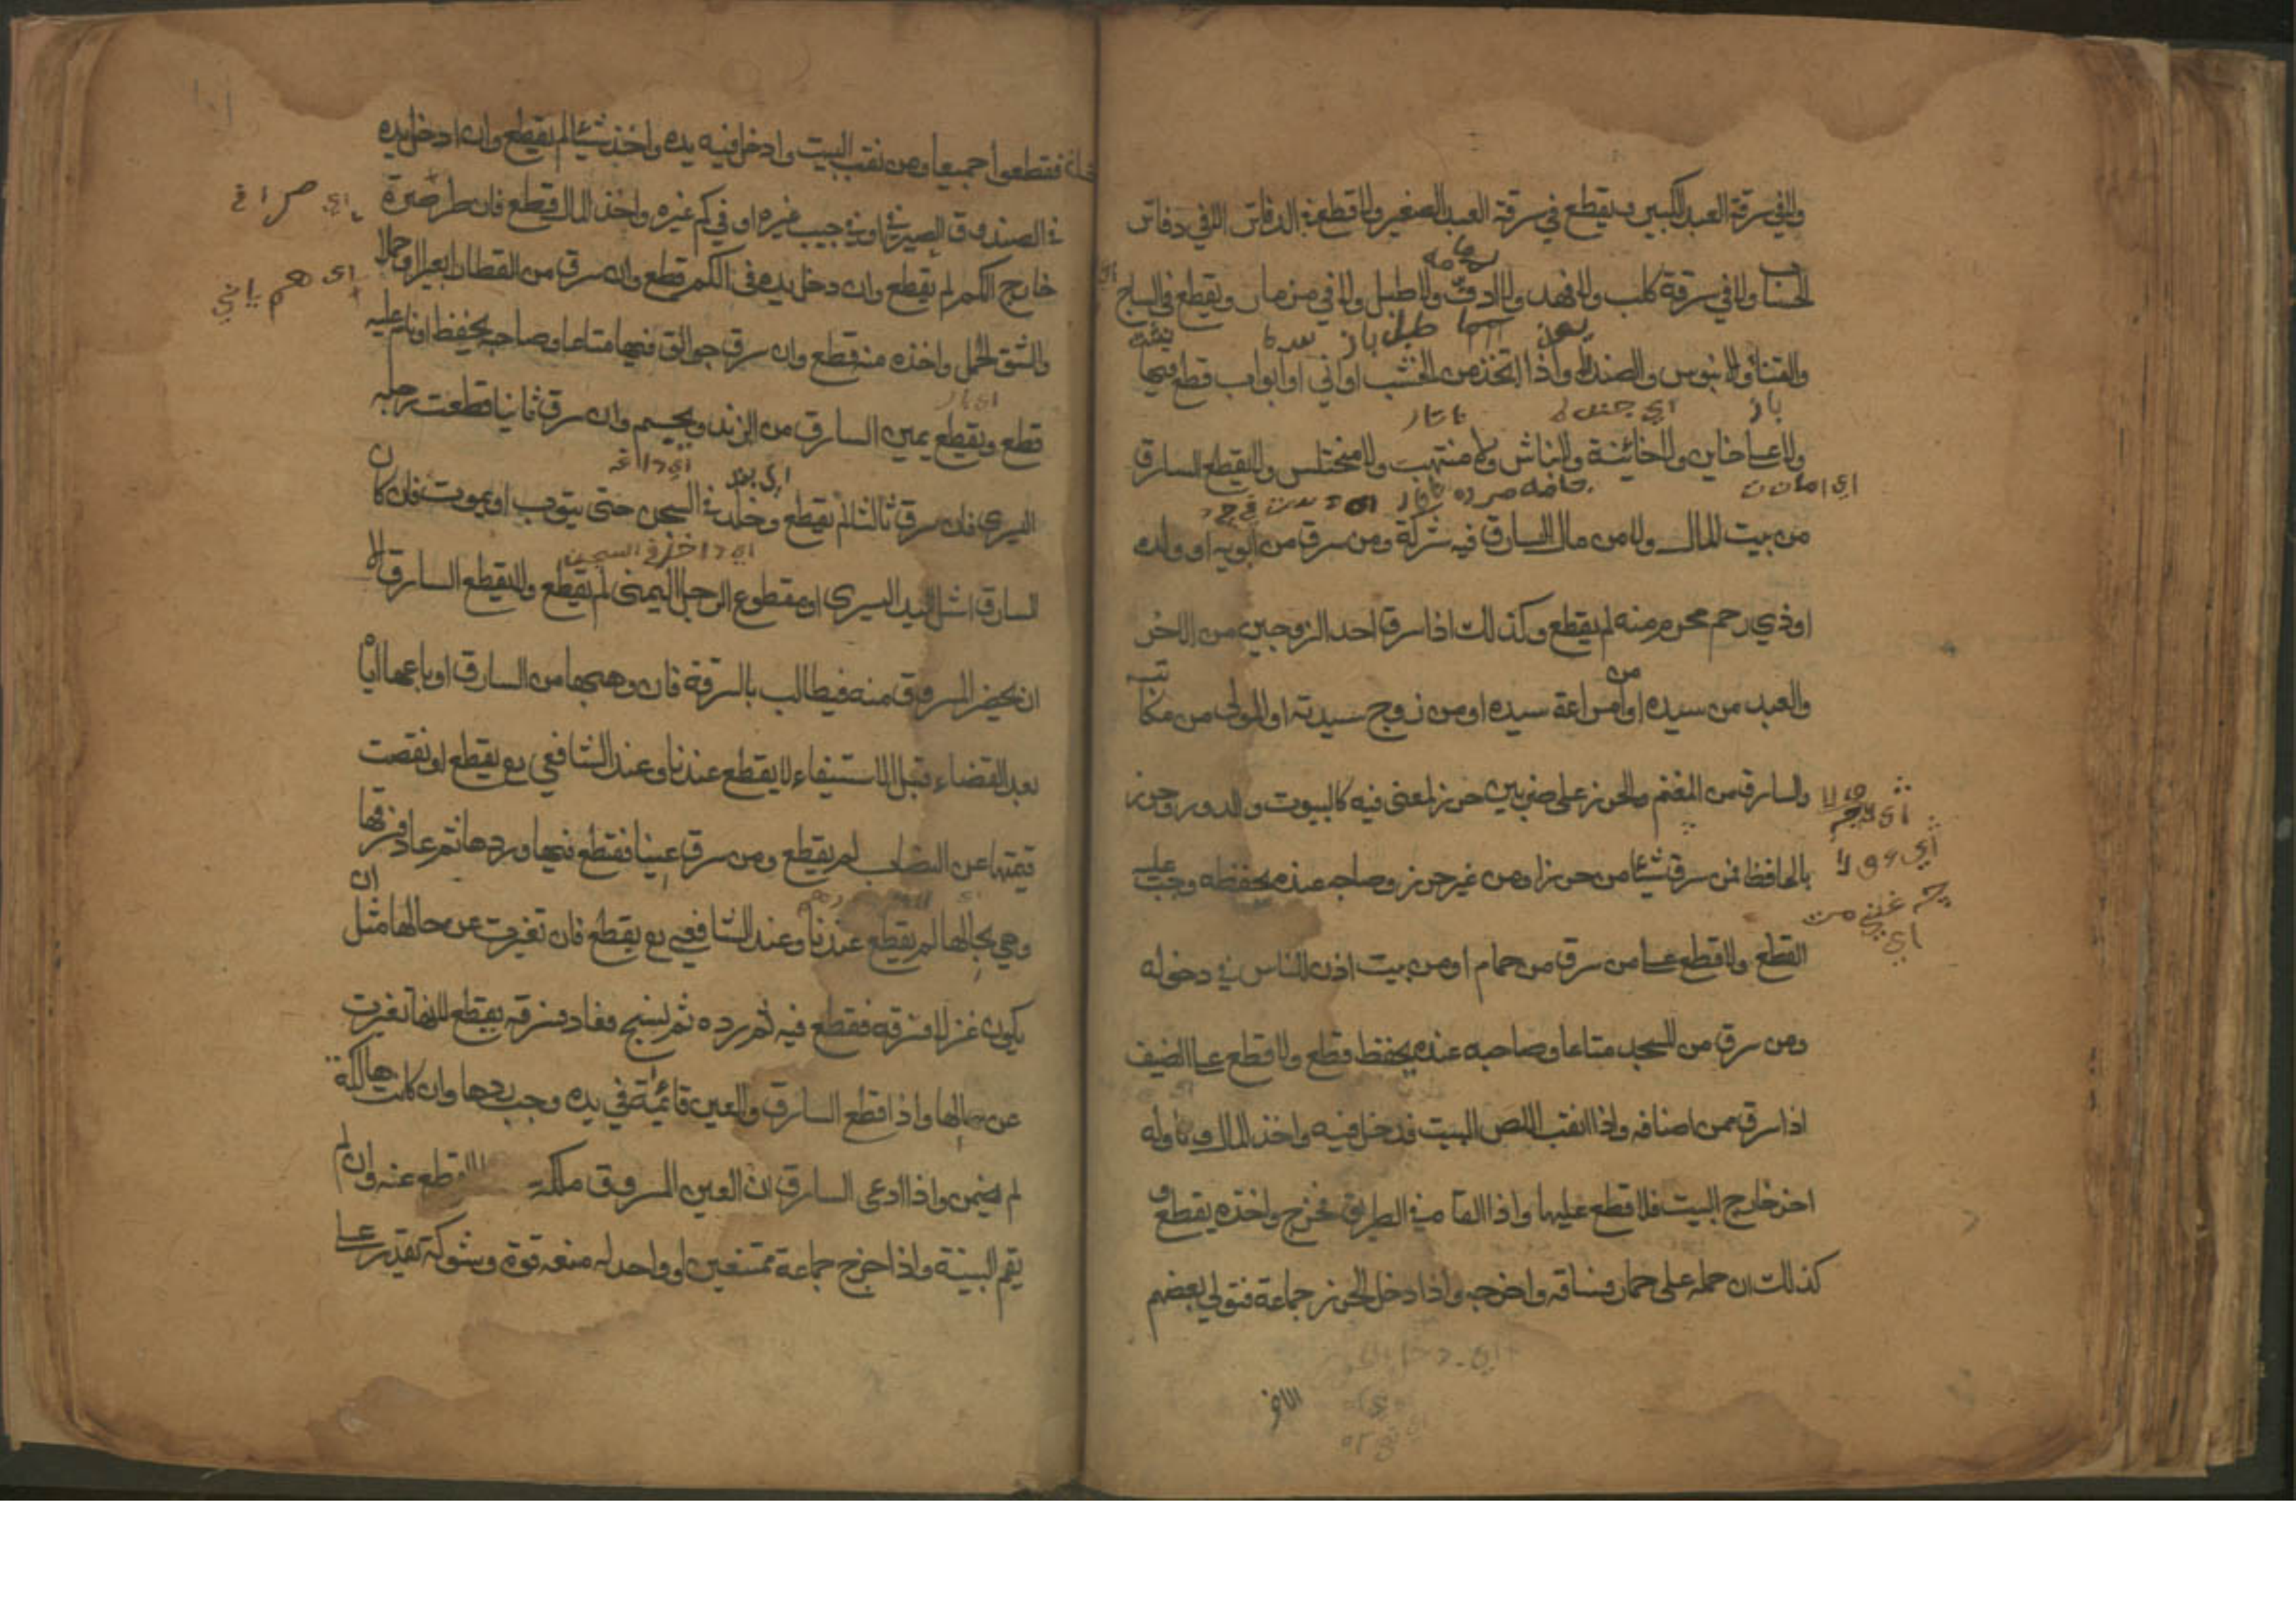 ولا في سرقة العبد الكبير ويقطع في سرقة العبد الصغير ولا قطع في الدفاتر الا في دفاتر
الحساب ولا في سرقة كلب ولا فهد ولا دف ولا طبل ولا في مزمار ويقطع في الساج
والقنا والابنوس والصندل واذا اتخذ من الخشب اواني او ابواب قطع فيها
ولا على خاين ولا خائنة ولا نباش ولا منتهب ولا مختلس ولا يقطع السارق
من بيت المال ولا من مال السارق فيه شركة ومن سرق من ابويه او ولده
او ذي رحم محرم منه لم يقطع وكذلك اذا سرق احد الزوجين من الاخر
والعبد من سيده او من امراءة سيده او من زوج سيدته او المولى من مكاتبه
والسارق من المغنم والحرز على ضربين حرز لمعنى فيه كالبيوت والدور وحرز
بالحافظ فمن سرق شيئا من حرز او من غير حرز وصاحبه عنده يحفظه وجب عليه
القطع ولا قطع على من سرق من حمام او من بيت اذن للناس في دخوله
ومن سرق من المسجد متاعا وصاحبه عنده يحفظ قطع ولا قطع على الضيف
اذا سرق ممن اضافه واذا انقب اللص البيت فدخل فيه واخذ المال وناوله
اخر خارج البيت فلا قطع عليها واذا القاه في الطريق فخرج واخذه يقطع و
كذلك ان حمله على حمار فساقه واخرجه واذا دخل الحرز جماعة فتولى بعضهم
الاخذ
فقطعوا جميعا ومن نقب البيت وادخل فيه يده واخذ شيئا لم يقطع وان ادخل يده
في الصندوق الصيرفي او في جيب غيره او في كم غيره واخذ المال قطع فان طر صرة
خارج الكم لم يقطع وان دخل يده في الكم قطع وان سرق من القطار بعيرا او حملا
والشق الحمل واخذه منه قطع وان سرق جوالق فيها متاعا وصاحبه يحفظ او نائم عليه
قطع ويقطع يمين السارق من الزند ويحسم وان سرق ثانيا قطعت رجله
اليسرى فان سرق ثالثا لم يقطع وخلد في السجن حتى يتوب او يموت فان كان
اي داخل في السجن
السارق اشل اليد اليسرى او مقطوع الرجل اليمنى لم يقطع ولا يقطع السارق الا
ان يحضر المسروق منه فيطالب بالسرقة فان وهبها من السارق او باعها اياه
بعد القضاء قبل الاستيفاء لا يقطع عندنا وعند الشافعي رح يقطع او نقصت
قيمتها عن النصاب لم يقطع ومن سرق عينا فقطع فيها وردها ثم عاد فسرقها
وهي بحالها لم يقطع عندنا وعند الشافعي رح يقطع فان تغيرت عن حالها مثل ان
يكون غزلا فسرقه فقطع فيه ثم رده ثم نسج فعاد وسرقه يقطع لانها تغيرت
عن حالها واذا قطع السارق والعين قائمة في يده وجب ردها وان كانت هالكة
لم يضمن واذا ادعى السارق ان العين المسروق ملكه القطع عنه وان لم
يقم البينة واذا خرج جماعة ممتنعين او واحد له منعه قوة وشوكة تقدر على